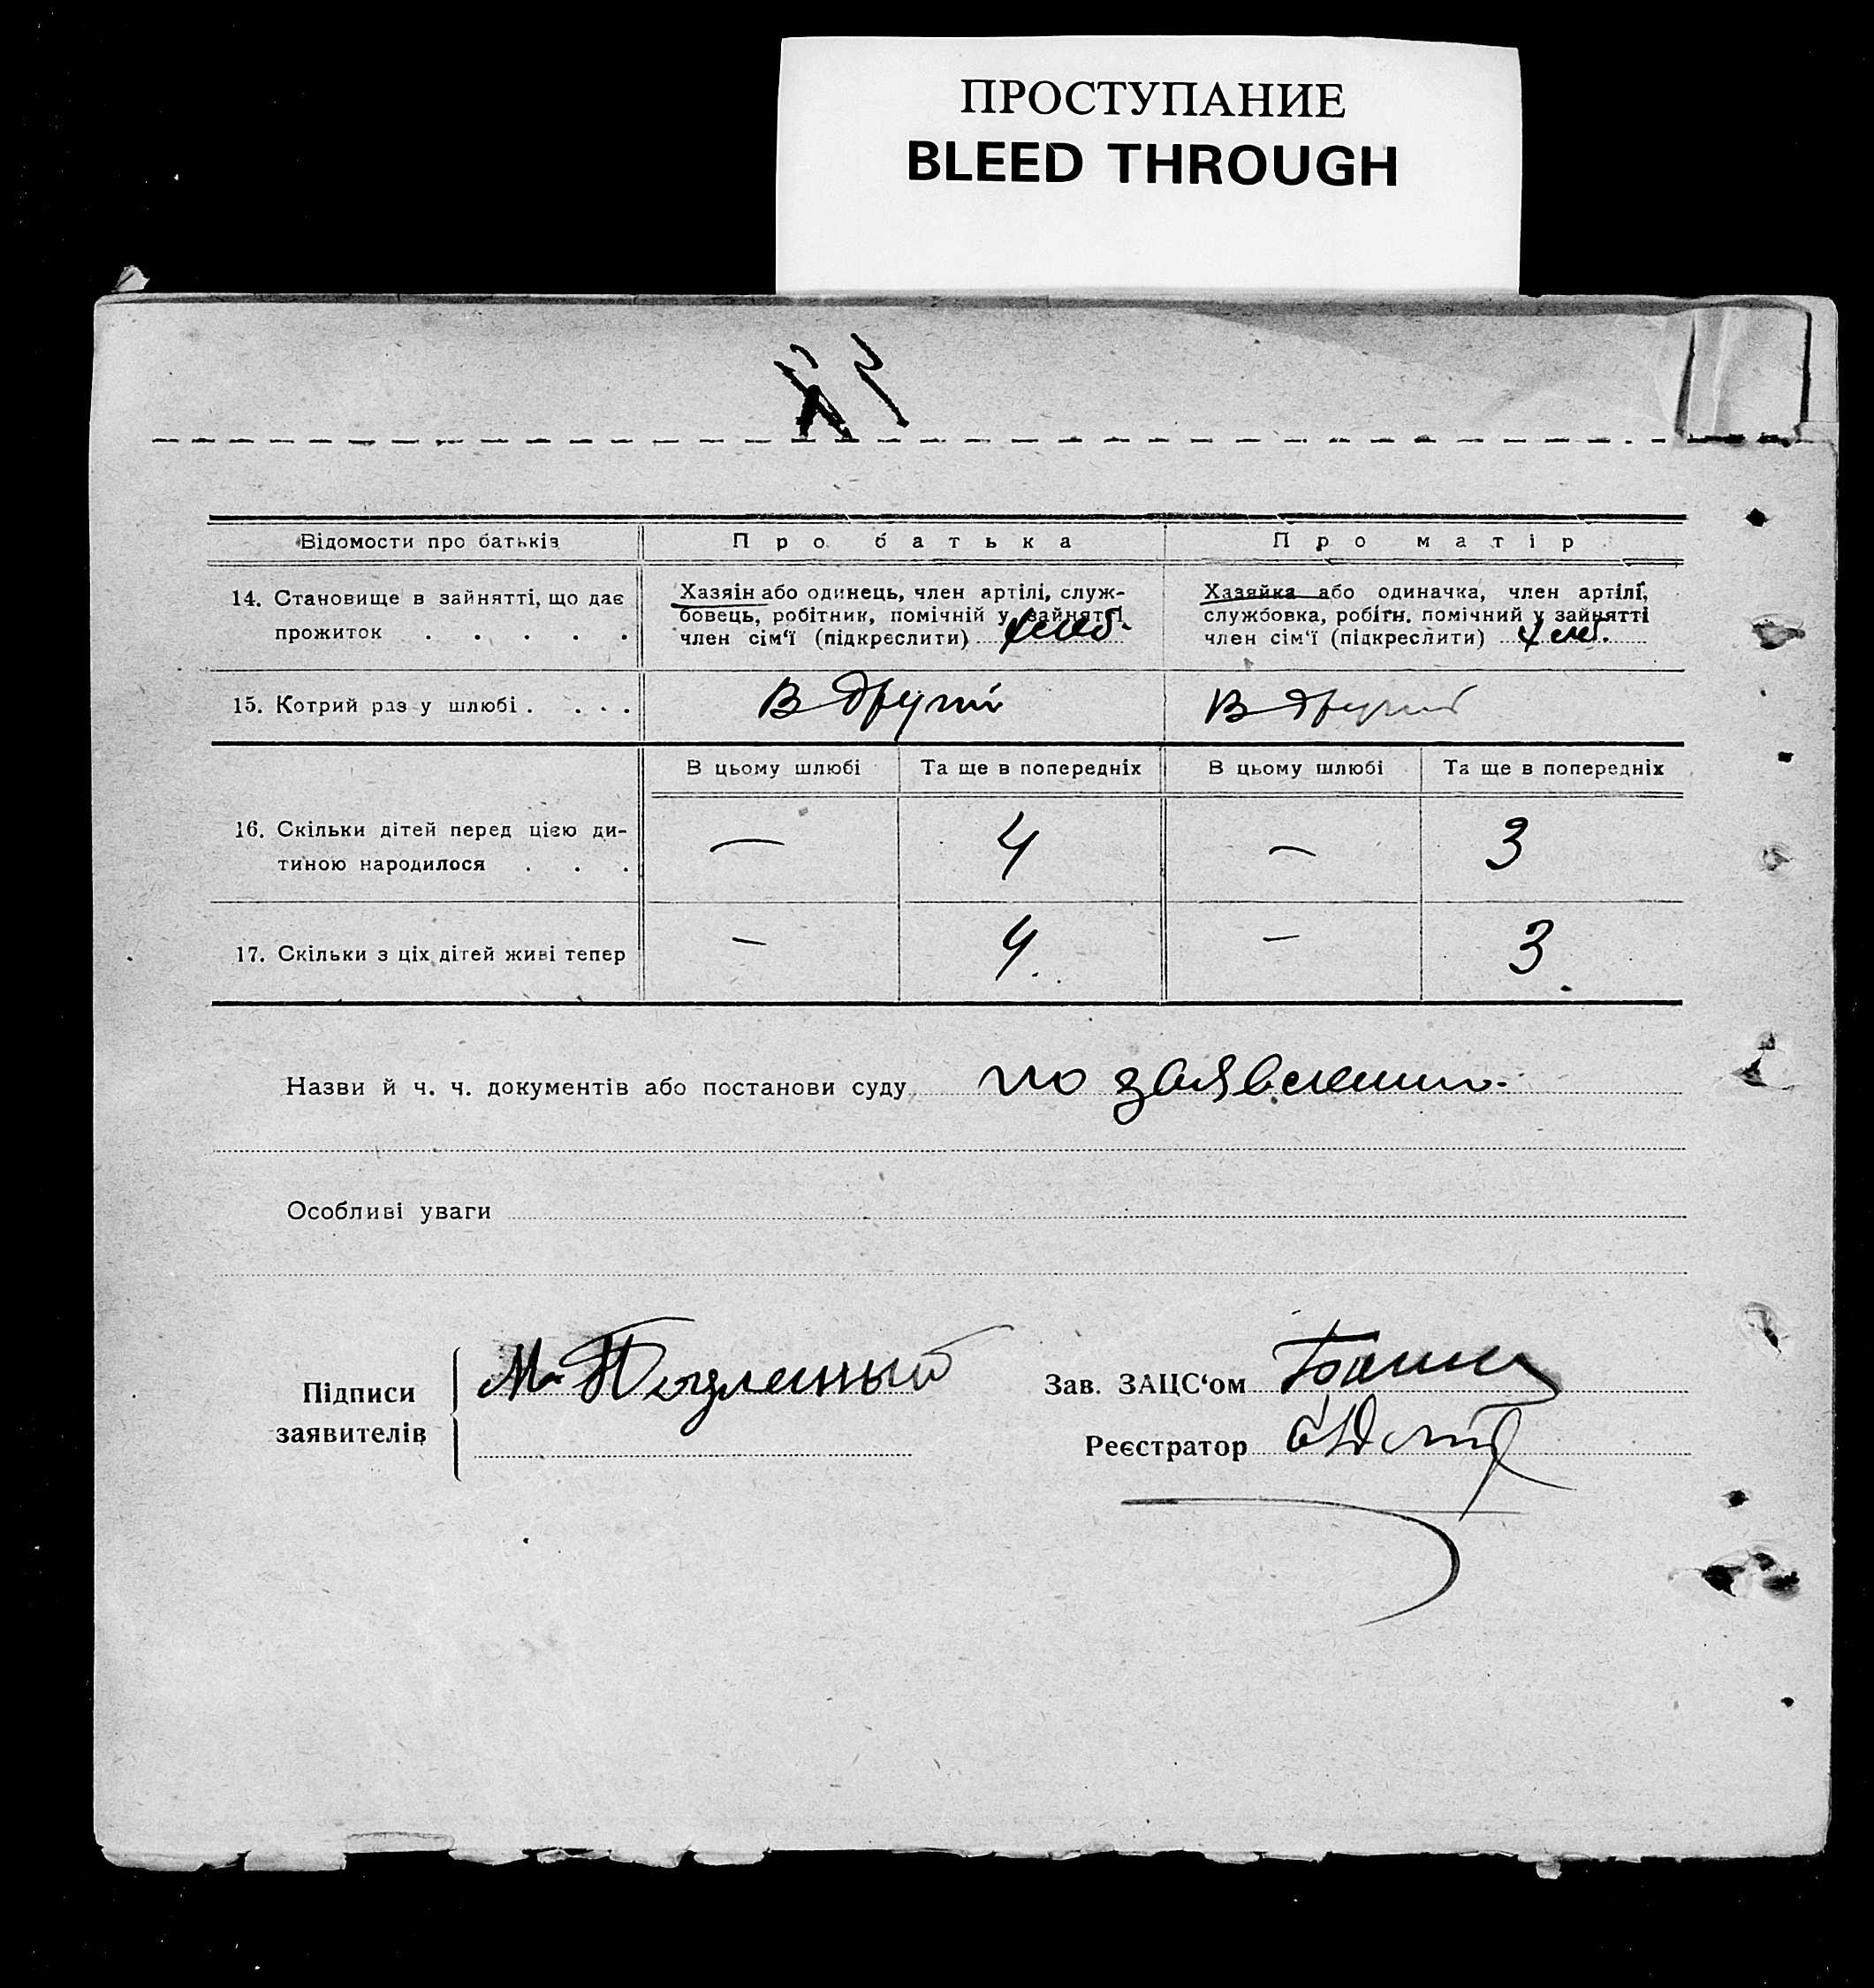 ПРОСТУПАНИЕ
BLEED THROUGH
Відомости про батьків
Про батька
Про матір
14. Становище в зайнятті, що дає
прожиток . . . . .
Хазяін або одинець, член артілі, служ-
бовець, робітник, помічній у зайнятті
член сім'ї (підкреслити)
Хазяйка або одиначка, член артілі,
службовка, робітн. помічний у зайнятті
член сім'ї (підкреслити)
15. Котрий раз у шлюбі . . . .
В другий
В другий
В цьому шлюбі
Та ще в попередніх
В цьому шлюбі
Та ще в попередніх
16. Скільки дітей перед цією ди-
тиною народилося . . .
— 4 — 3
17. Скільки з ціх дітей живі тепер
— 4. — 3
Назви й ч. ч. документів або постанови суду по заявлению.
Особливі уваги
Підписи
заявителів
М.
Зав. ЗАЦС‘ом
Реєстратор